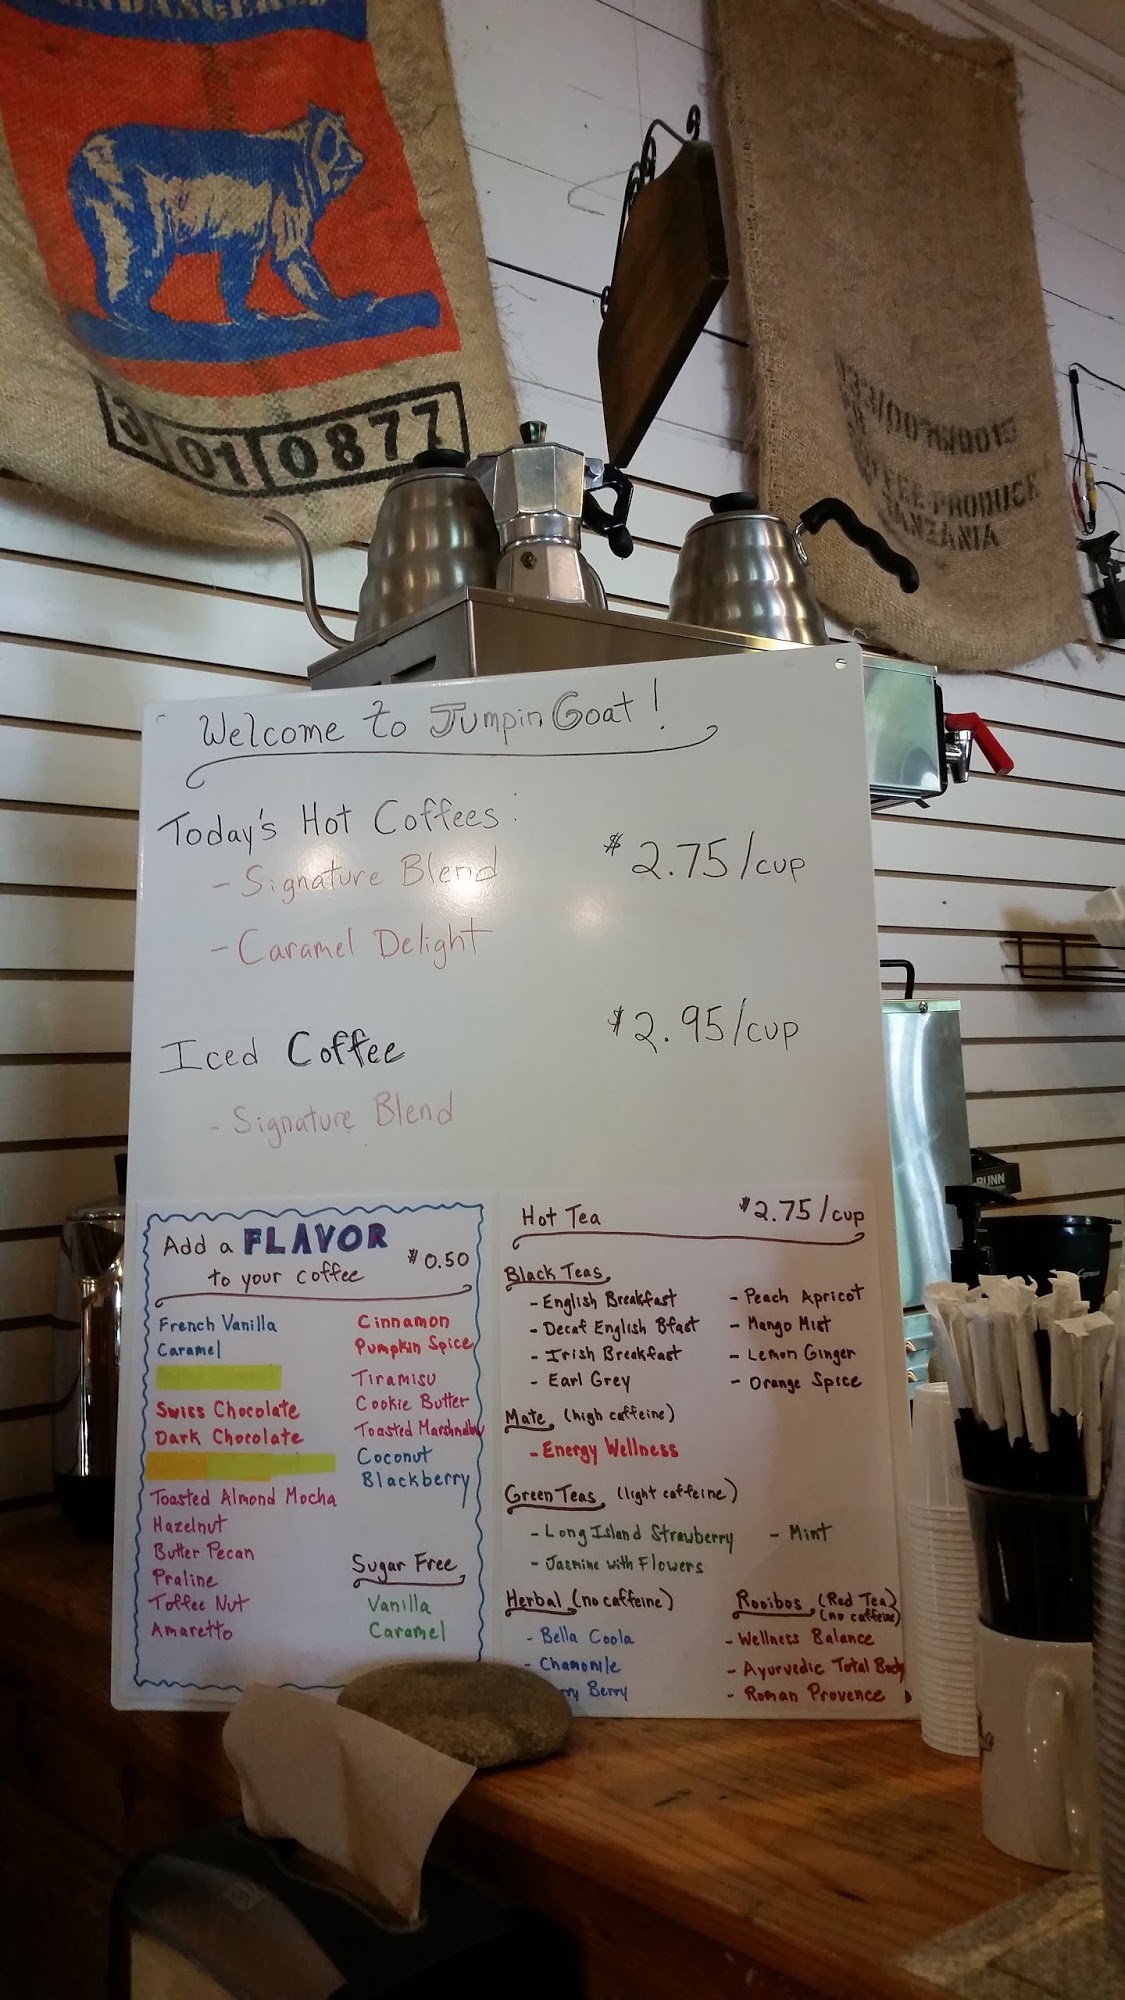 ENDANGERED
3 01 0877
COFFEE PRODUCE
TANZANIA
Welcome to Jumpin Goat!
Today's Hot Coffees:
- Signature Blend
$2.75/cup
- Caramel Delight
Iced Coffee
$2.95/cup
- Signature Blend
Add a FLAVOR
to your coffee
$0.50
French Vanilla
Caramel
Swiss Chocolate
Dark Chocolate
Toasted Almond Mocha
Hazelnut
Butter Pecan
Praline
Toffee Nut
Amaretto
Cinnamon
Pumpkin Spice
Tiramisu
Cookie Butter
Toasted Marshmallow
Coconut
Blackberry
Sugar Free
Vanilla
Caramel
Hot Tea
$2.75/cup
Black Teas
- English Breakfast
- Decaf English Bfast
- Irish Breakfast
- Earl Grey
- Peach Apricot
- Mango Mist
- Lemon Ginger
- Orange Spice
Mate (high caffeine)
- Energy Wellness
Green Teas (light caffeine)
- Long Island Strawberry
- Jasmine with Flowers
- Mint
Herbal (no caffeine)
- Bella Coola
- Chamomile
Berry
Rooibos (Red Tea)
(no caffeine)
- Wellness Balance
- Ayurvedic Total Body
- Roman Provence
BUNN